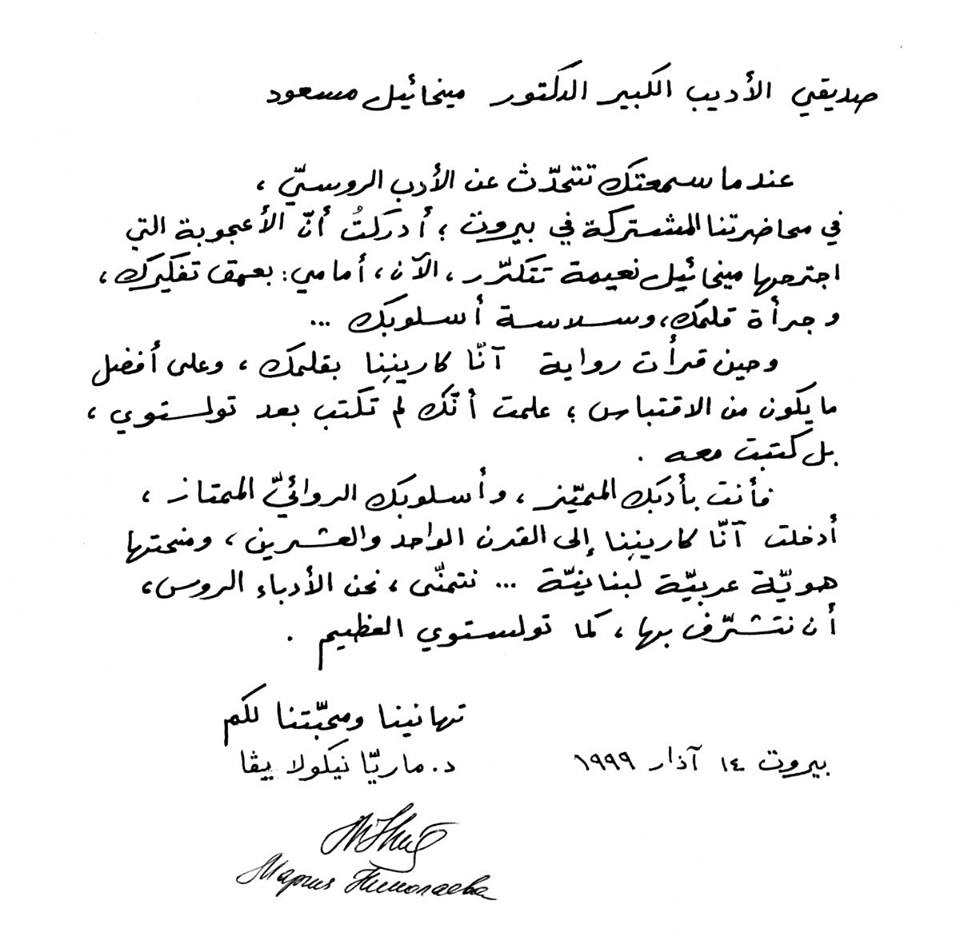 صديقي الأديب الكبير الدكتور ميخائيل مسعود
عندما سمعتك تتحدّث عن الأدب الروسيّ ،
في محاضرتنا المشتركة في بيروت ؛ أدركتُ أنّ الأعجوبة التي
اجترحها ميخائيل نعيمة تتكرّر ، الآن ، أمامي : بعمق تفكيرك ،
و جرأة قلمك، وسلاسة أسلوبك ...
وحين قرأت رواية آنّا كارينِنا بقلمك ، وعلى أفضل
ما يكون من الاقتباس ؛ علمت أنّك لم تكتب بعد تولستوي ،
بل كتبت معه .
فأنت بأدبك المميّز ، وأسلوبك الروائيّ الممتاز ،
أدخلت آنّا كارينِنا إلى القرن الواحد والعشرين ، ومنحتها
هويّة عربيّة لبنانيّة ... نتمنّى ، نحن الأدباء الروس ،
أن نتشرّف بها ، كما تولستوي العظيم .
تهانينا ومحبّتنا لكم
د. ماريّا نيكولا ييڤا
بيروت ١٤ آذار ١٩٩٩
Мария Николаева